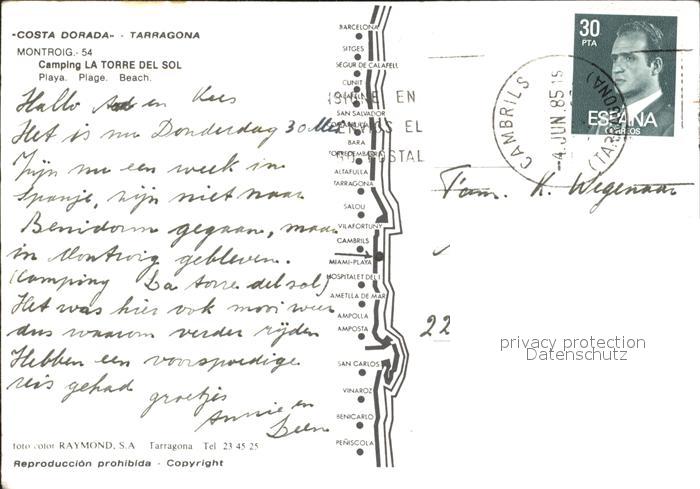 "COSTA DORADA" - TARRAGONA
MONTROIG.- 54
Camping LA TORRE DEL SOL
Playa. Plage. Beach.
Hallo en Kees
Het is nu Donderdag 30 Mei
Zijn nu een week in
Spanje, zijn niet naar
Benidorm gegaan, maar
in Montroig gebleven.
(Camping La torre del sol)
Het was hier ook mooi weer
dus waarom verder rijden
Hebben een voorspoedige
reis gehad groetjes
Annie en
Leen
foto color RAYMOND, S.A Tarragona Tel 23 45 25
Reproducción prohibida - Copyright
BARCELONA
SITGES
SEGUR DE CALAFELL
CUNIT
SAN SALVADOR
BARA
TORREDEMBARRA
ALTAFULLA
TARRAGONA
SALOU
VILAFORTUNY
CAMBRILS
MIAMI-PLAYA
HOSPITALET DEL I.
AMETLLA DE MAR
AMPOLLA
AMPOSTA
SAN CARLOS
VINAROZ
BENICARLO
PEÑISCOLA
EN
EL
POSTAL
CAMBRILS
-4 JUN 85
(TARRAGONA)
30
PTA
ESPAÑA
CORREOS
Fam. K. Wegenaar
22
privacy protection
Datenschutz